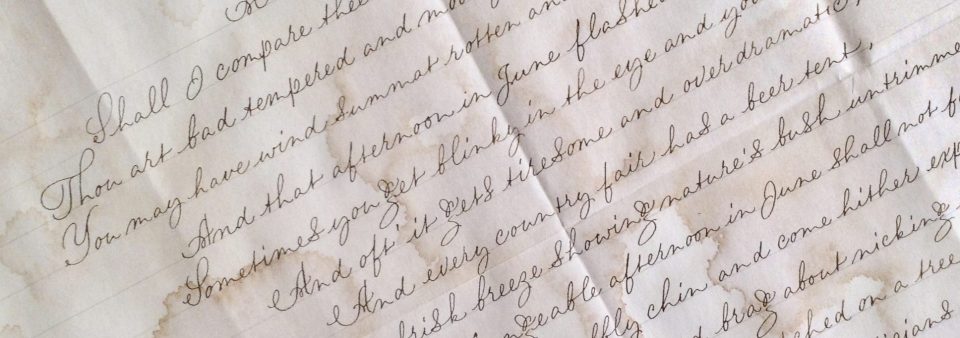 Shall I compare thee
Thou art bad tempered and mo
You may have wind Summat rotten an
And that afternoon in June flashed
Sometimes you get blinky in the eye and yo
And oft' it gets tiresome and over dramatic,
And every country fair has a beer tent,
risk breeze Showing nature's bush untrimme
geable afternoon in June Shall not f
bly chin and come hither exp
d brag about nicking
ched on a tree
icians